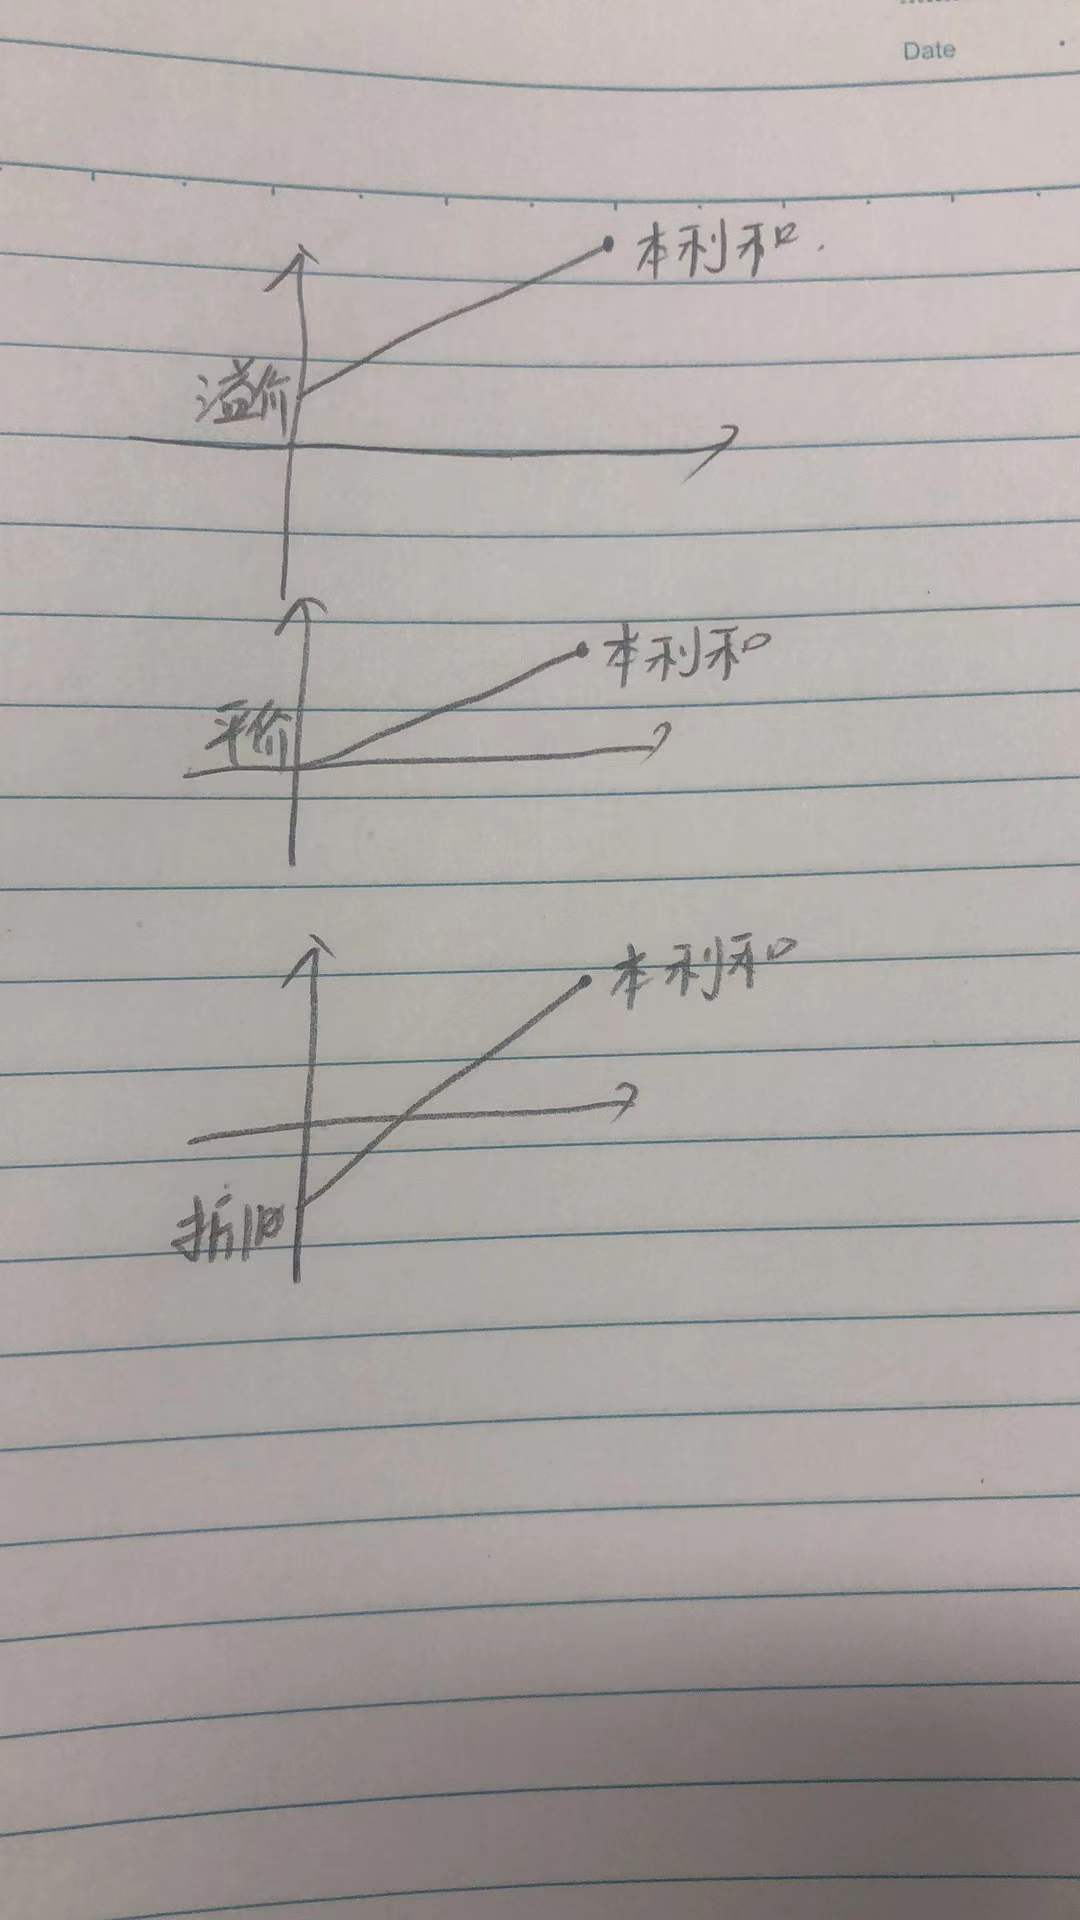 Date
本利和.
溢价
本利和
平价
本利和